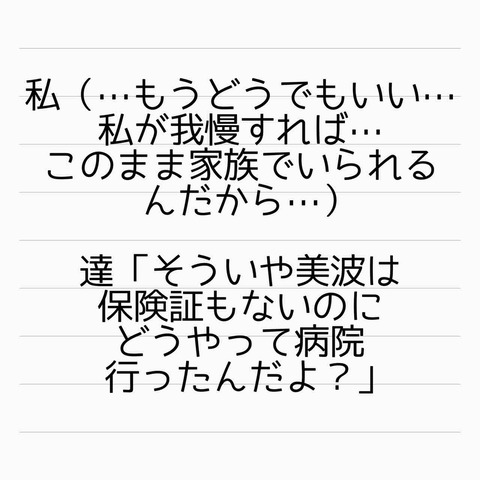 私（…もうどうでもいい…
私が我慢すれば…
このまま家族でいられる
んだから…）
達「そういや美波は
保険証もないのに
どうやって病院
行ったんだよ？」